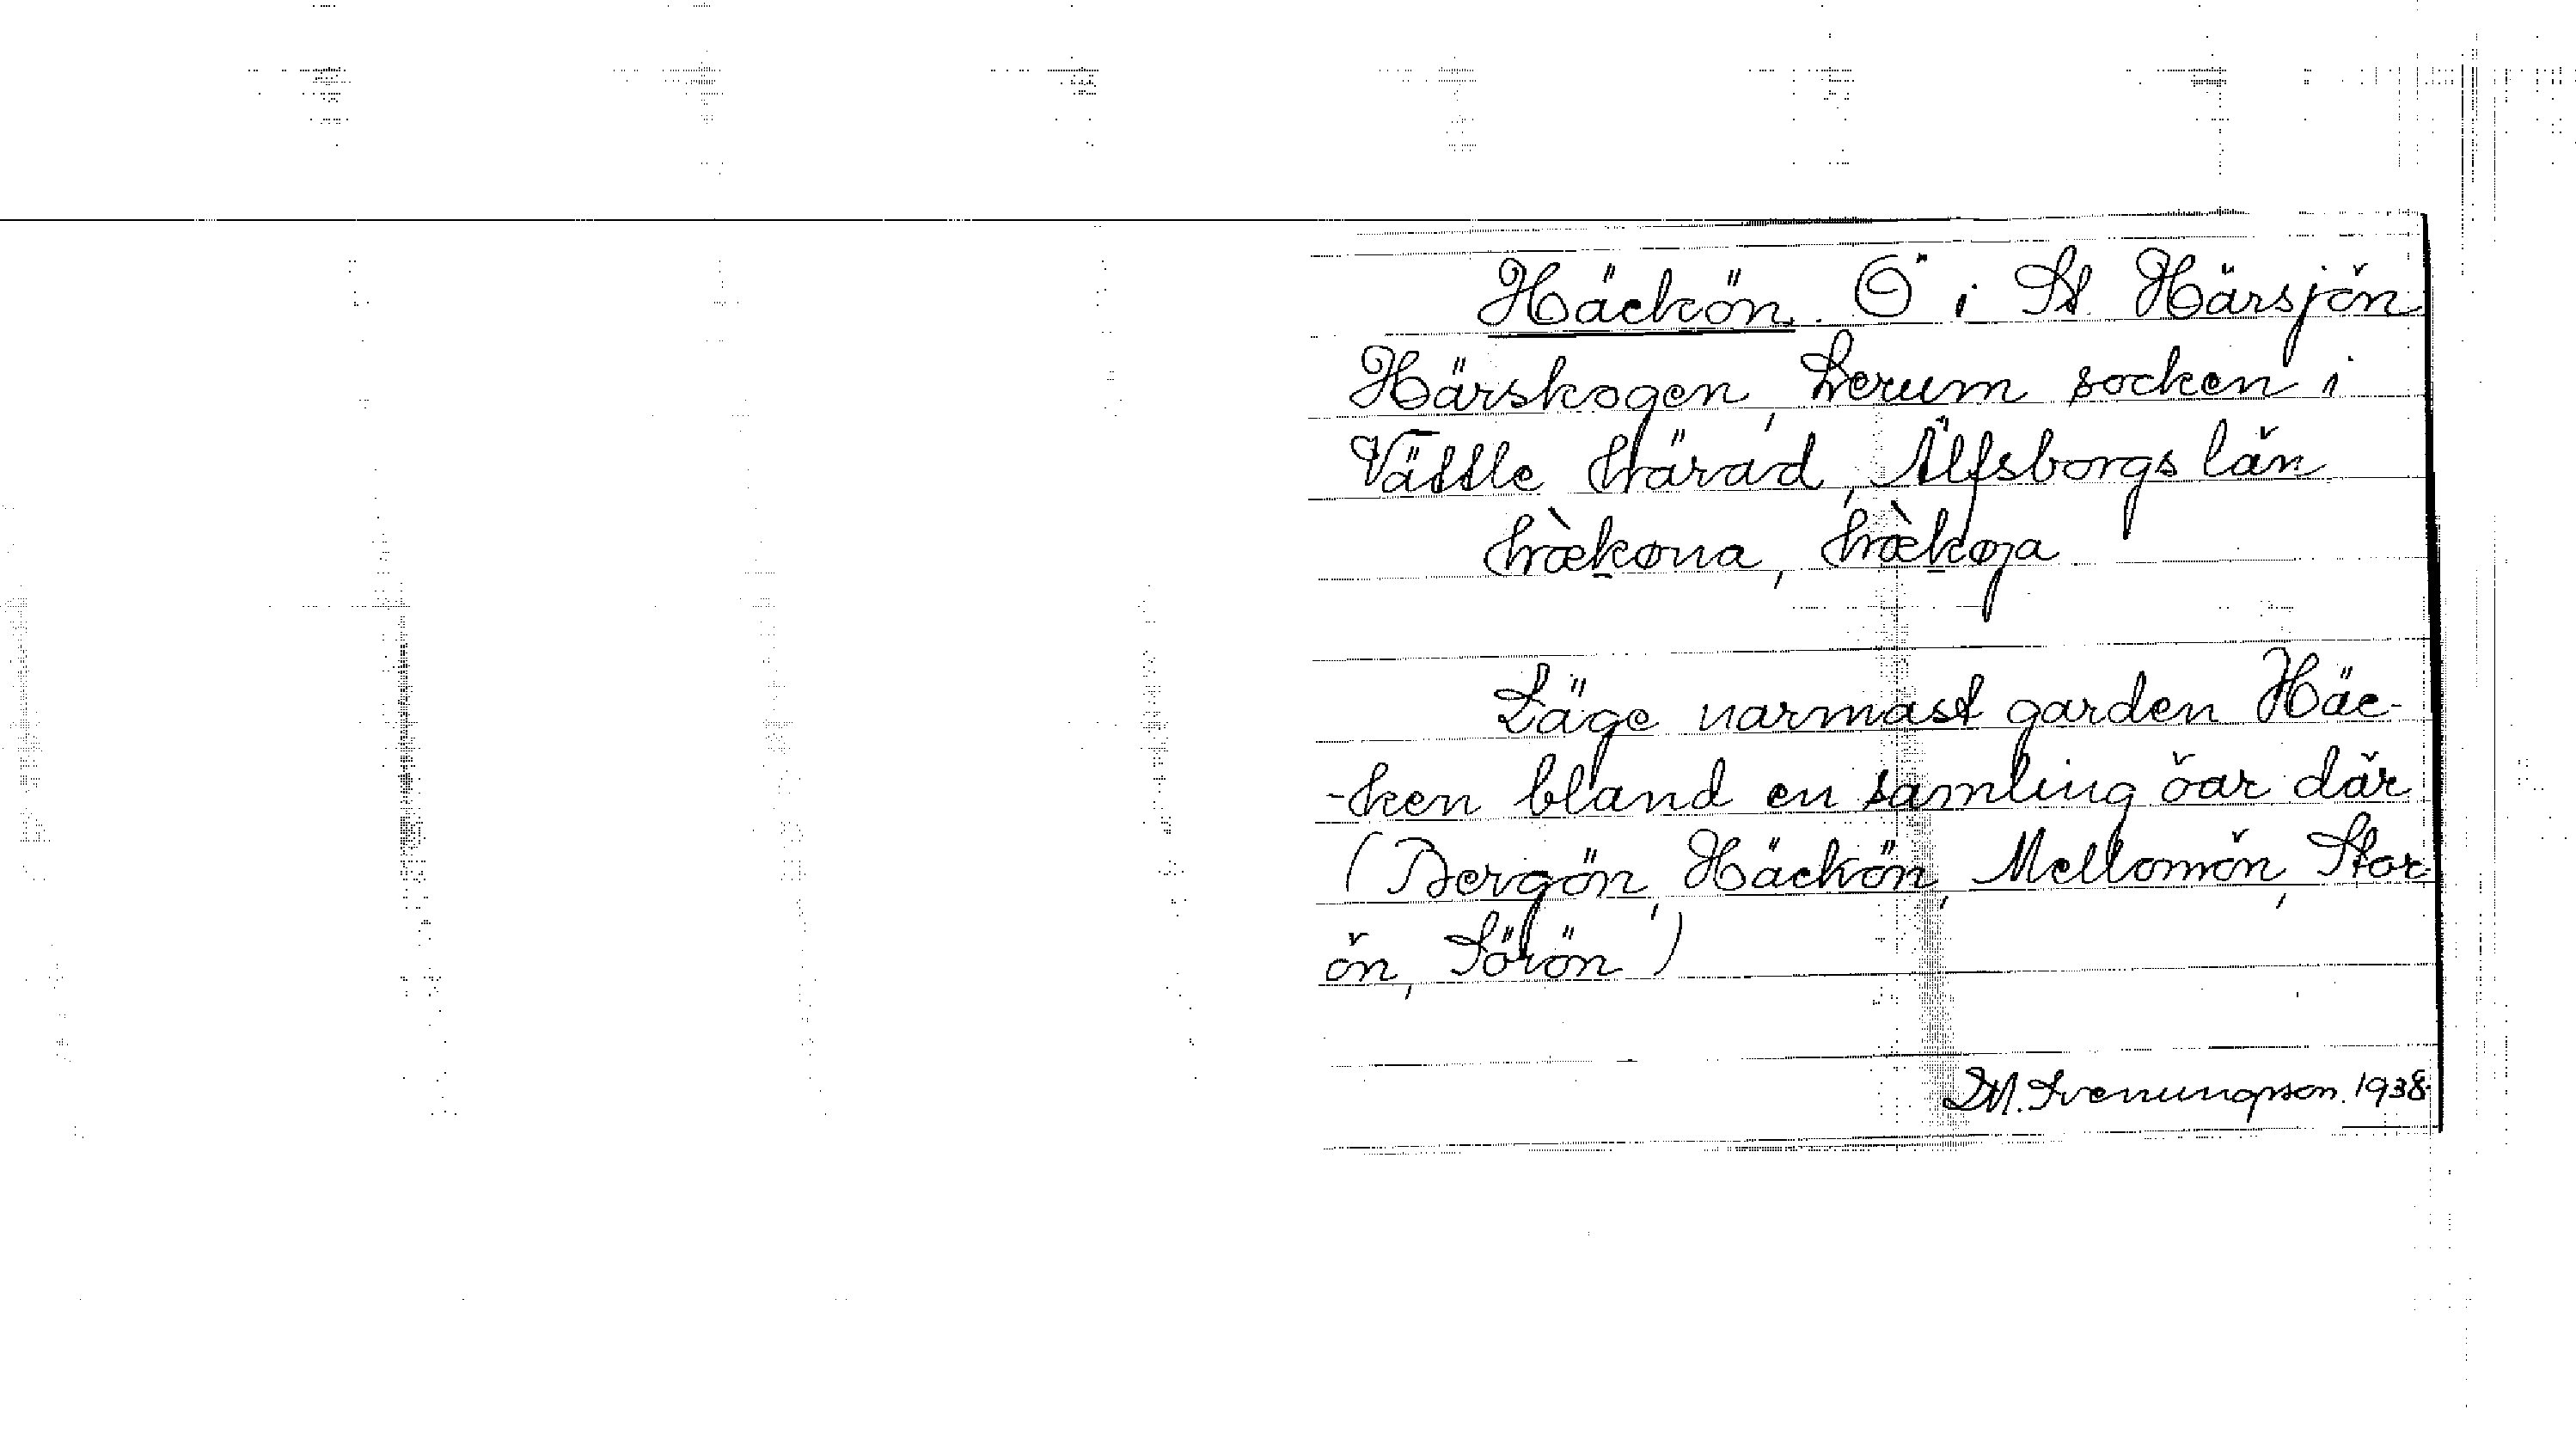 Häckön. Ö i St. Härsjön
Härskogen, Lerum socken i
Vättle härad, Älfsborgs län
hæ̀køna, hæ̀køja
Läge narmast garden Häc-
-ken bland en samling öar där
(Bergön, Häckön, Mellomön, Stor
ön, Sörön)
D.M. Svenungsson. 1938